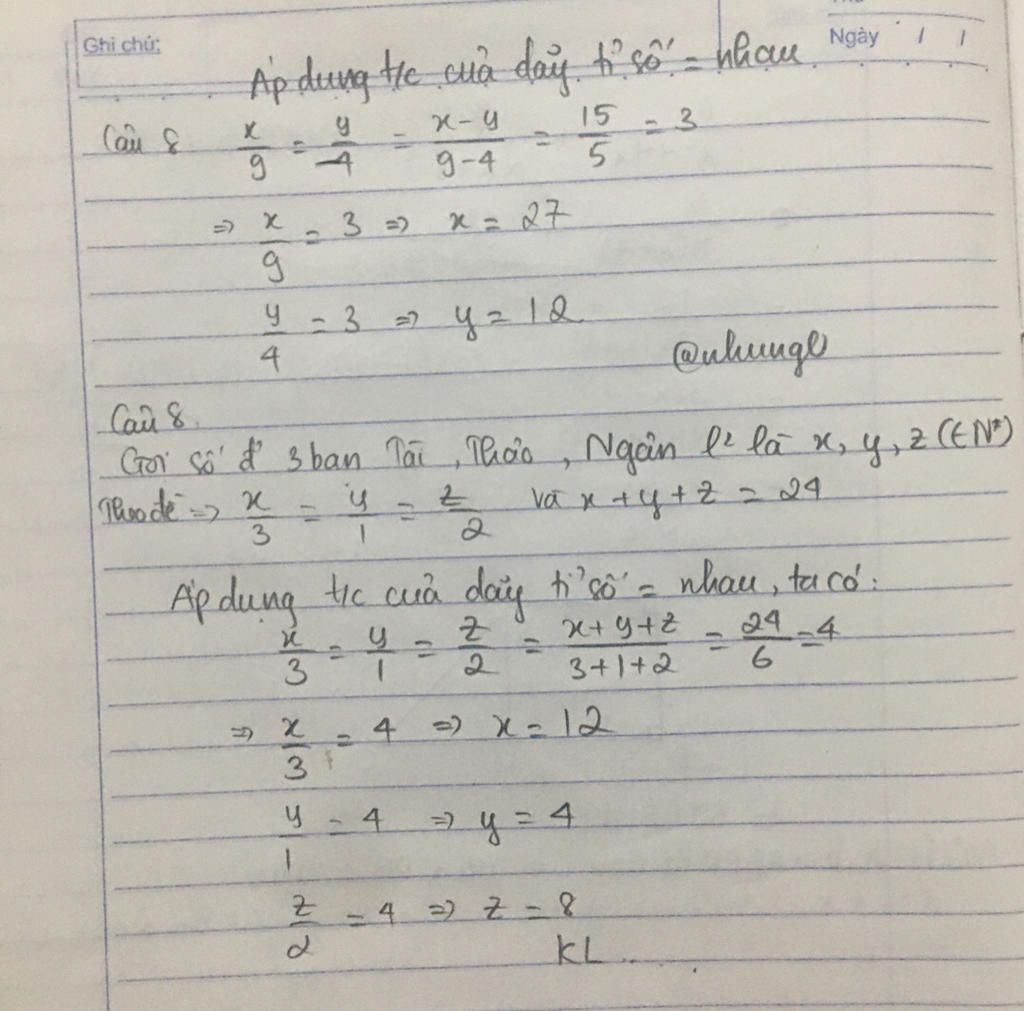 Ghi chú:
Ngày / /
Áp dụng t/c của dãy tỉ số = nhau
Câu 8 x/9 = y/4 = x-y/9-4 = 15/5 = 3
⇒ x/9 = 3 ⇒ x = 27
y/4 = 3 ⇒ y = 12
@nhung
Câu 8.
Gọi số đ 3 bạn Tài, Thảo, Ngân l² là x, y, z (∈N*)
Theo đề ⇒ x/3 = y/1 = z/2 và x+y+z = 24
Áp dụng t/c của dãy tỉ số = nhau, ta có:
x/3 = y/1 = z/2 = x+y+z/3+1+2 = 24/6 = 4
⇒ x/3 = 4 ⇒ x = 12
y/1 = 4 ⇒ y = 4
z/2 = 4 ⇒ z = 8
KL ...